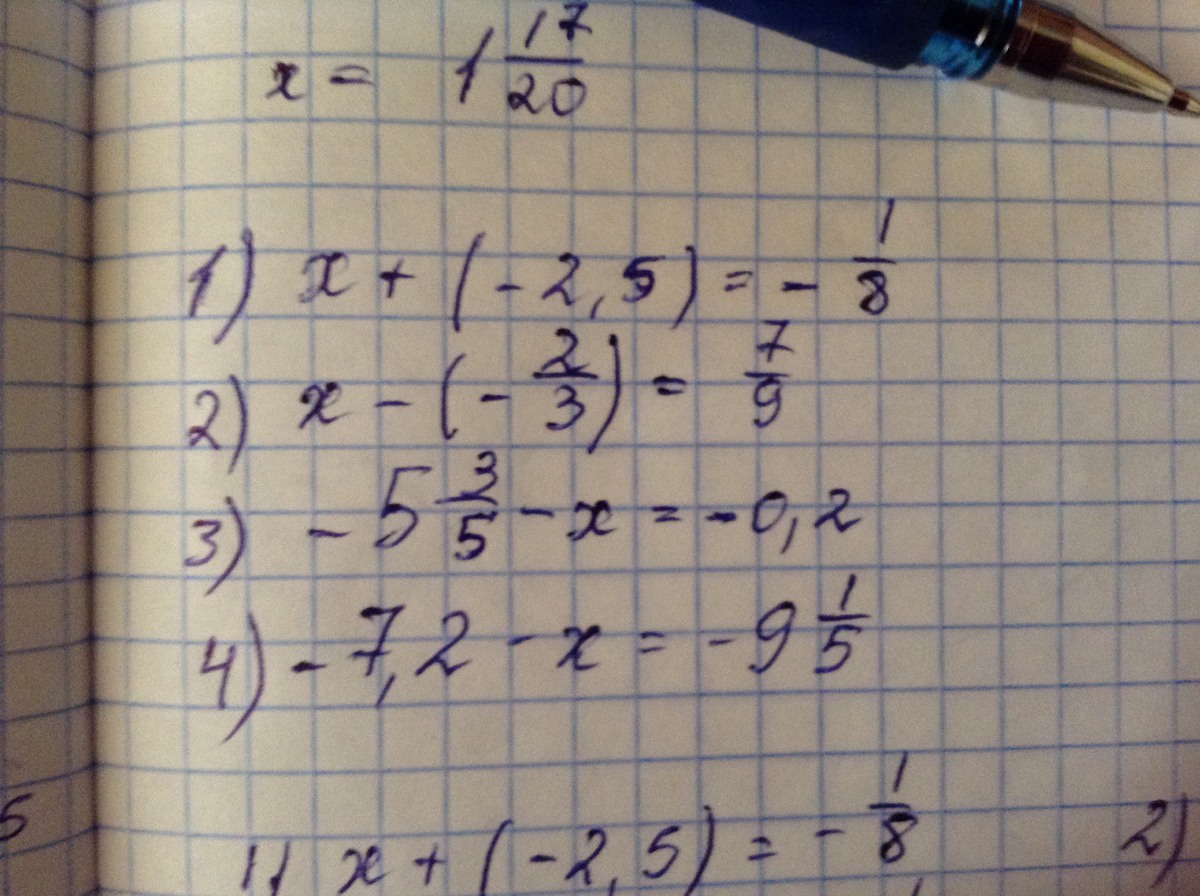 x = 1 17/20
1) x + (-2,5) = - 1/8
2) x - (- 2/3) = 7/9
3) - 5 3/5 - x = -0,2
4) - 7,2 - x = - 9 1/5
5 1) x + (-2,5) = - 1/8 2)